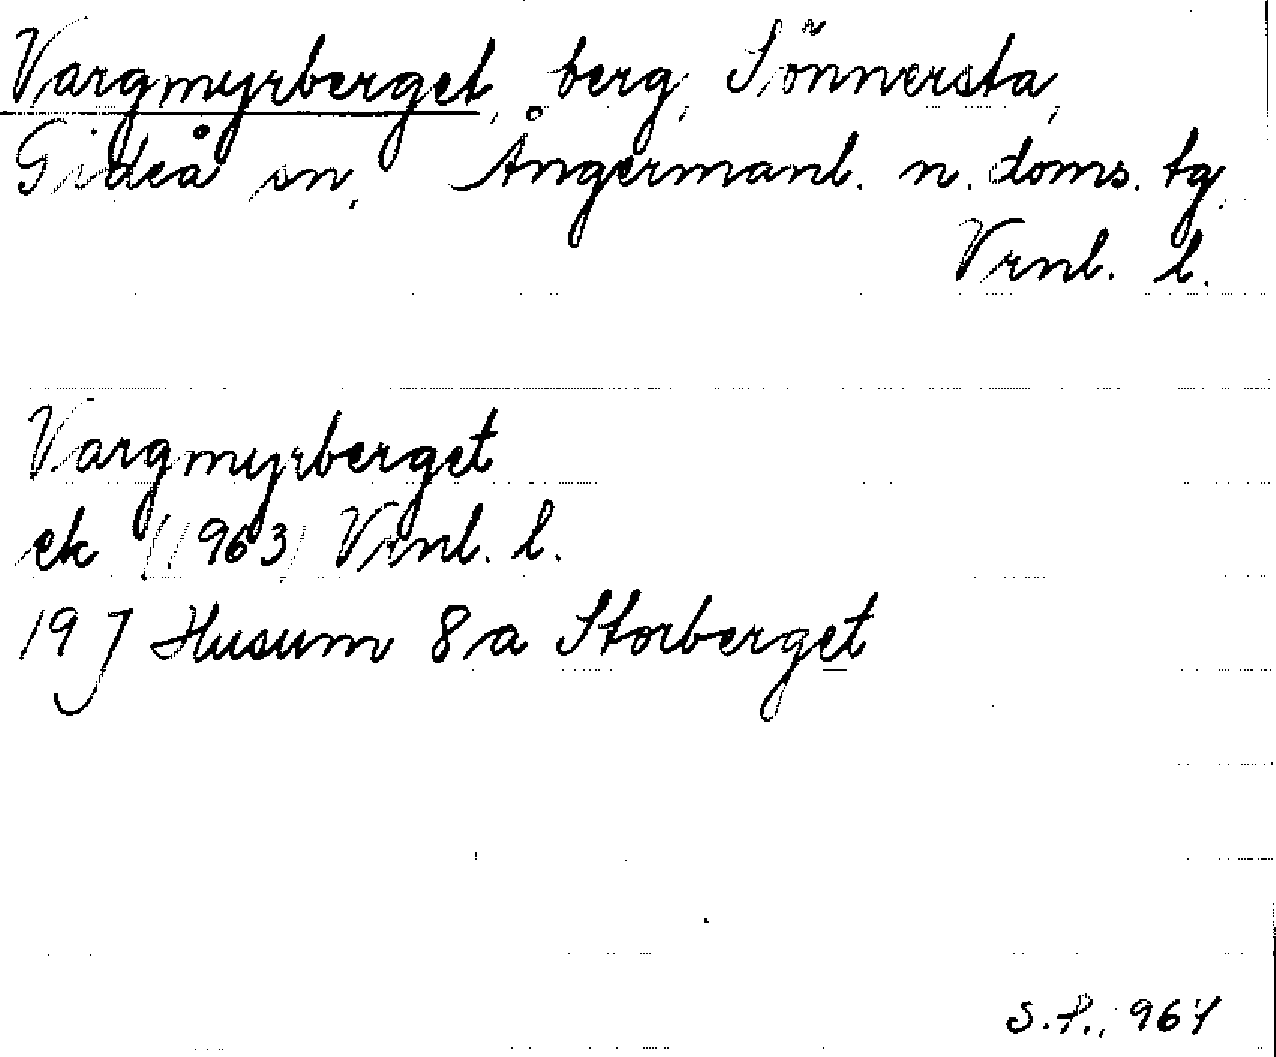 Vargmyrberget, berg, Sönnersta,
Gideå sn, Ångermanl. n. doms. tg
Vrnl. l.
Vargmyrberget
ek (1963) Vrnl. l.
19 J Husum 8a Storberget
S.P., 964